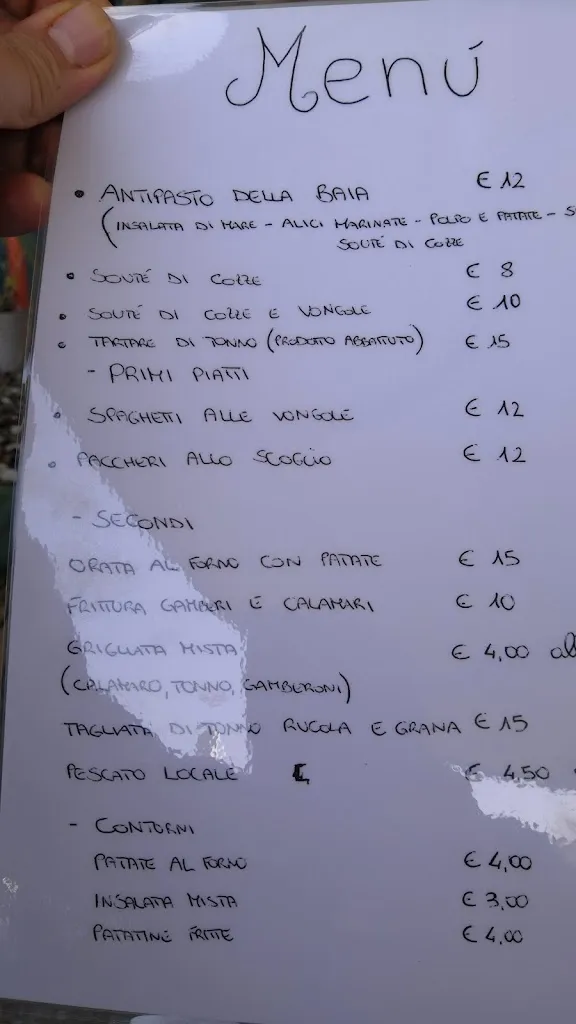 Menú
• ANTIPASTO DELLA BAIA € 12
(INSALATA DI MARE - ALICI MARINATE - POLPO E PATATE -
SOUTÉ DI COZZE
• SOUTÉ DI COZZE € 8
• SOUTÉ DI COZZE E VONGOLE € 10
• TARTARE DI TONNO (PRODOTTO ABBATTUTO) € 15
- PRIMI PIATTI
• SPAGHETTI ALLE VONGOLE € 12
• PACCHERI ALLO SCOGLIO € 12
- SECONDI
ORATA AL FORNO CON PATATE € 15
FRITTURA GAMBERI E CALAMARI € 10
GRIGLIATA MISTA € 4,00
(CALAMARO, TONNO, GAMBERONI)
TAGLIATA DI TONNO RUCOLA E GRANA € 15
PESCATO LOCALE € 4,50
- CONTORNI
PATATE AL FORNO € 4,00
INSALATA MISTA € 3,00
PATATINE FRITTE € 4,00